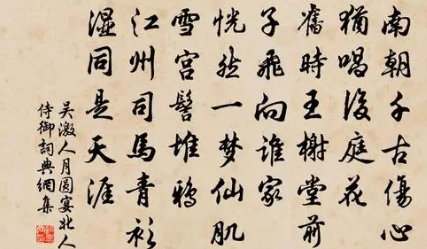 南朝千古傷心
猶唱後庭花
舊時王榭堂前
子飛向誰家
恍然一夢仙肌
雪宮髻堆鴉
江州司馬青衫
濕同是天涯
吳激人月圓宴北人
侍御詞典網集